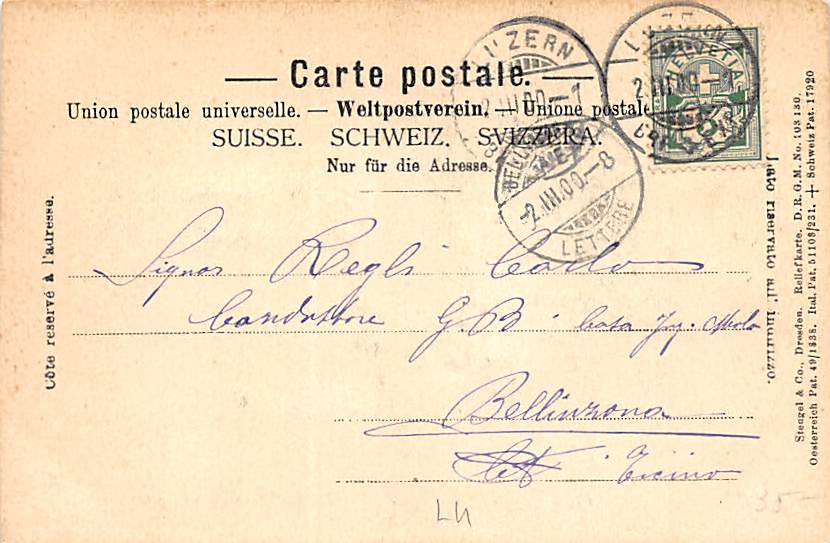 — Carte postale. —
Union postale universelle. — Weltpostverein. — Unione postale
SUISSE. SCHWEIZ. SVIZZERA.
Nur für die Adresse.
LUZERN
2.III.00-7
LUZERN
2.III.00
HELVETIA
5
2.III.00-8
LETTERE
Côté reservé à l'adresse.
Lato riservato all' indirizzo.
Stengel & Co., Dresden. Reliefkarte. D. R. G. M. No. 103 130.
Oesterreich Pat. 49/1838. Ital. Pat. 51108/231. + Schweiz Pat. 17920
Signor Regli Carlo
Conduttore G B Casa Ing.
Bellinzona
Ct. Ticino
LU
35-